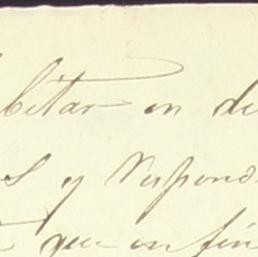 bitar en de
s y respond
que en fin